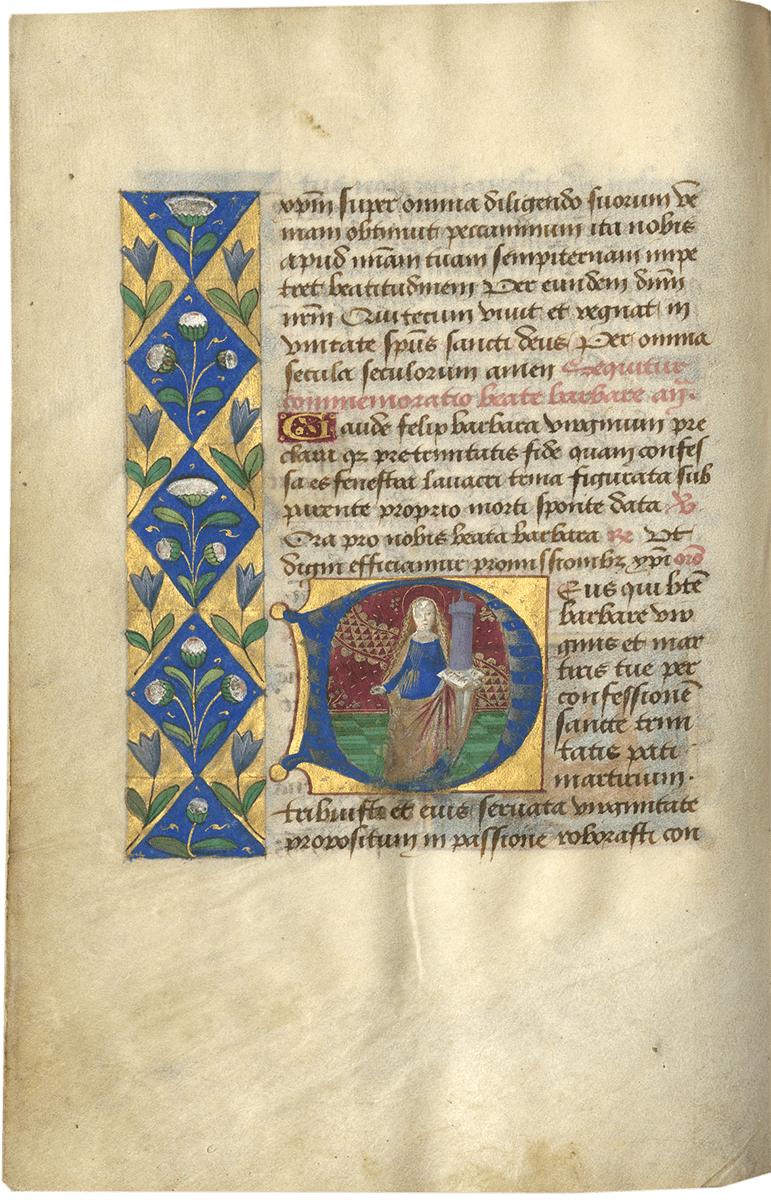 xp̄m super omnia diligendo suorum ve
niam obtinuit peccaminum ita nobis
apud īmēnsam tuam sempiternam impe
tret beatitudinem Per eundem dn̄m
nrm̄ Qui tecum vivit et regnat in
vnitate spūs sancti deus Per omnia
secula seculorum amen Sequitur
commemoratio beate barbare añ.
Gaude felix barbara virginum pre
clara qz pre trinitatis fide quam confes
sa es fenestra lavacri trina figurata sub
parente proprio morti sponte data V
Ora pro nobis beata barbara Re Ut
digni efficiamur promissionibz xpi orō
Deus qui btē
barbare vir
ginis et mar
tiris tue per
confessionē
sancte trini
tatis pati
martirium.
tribuisti et eius servata virginitate
propositum in passione roborasti con